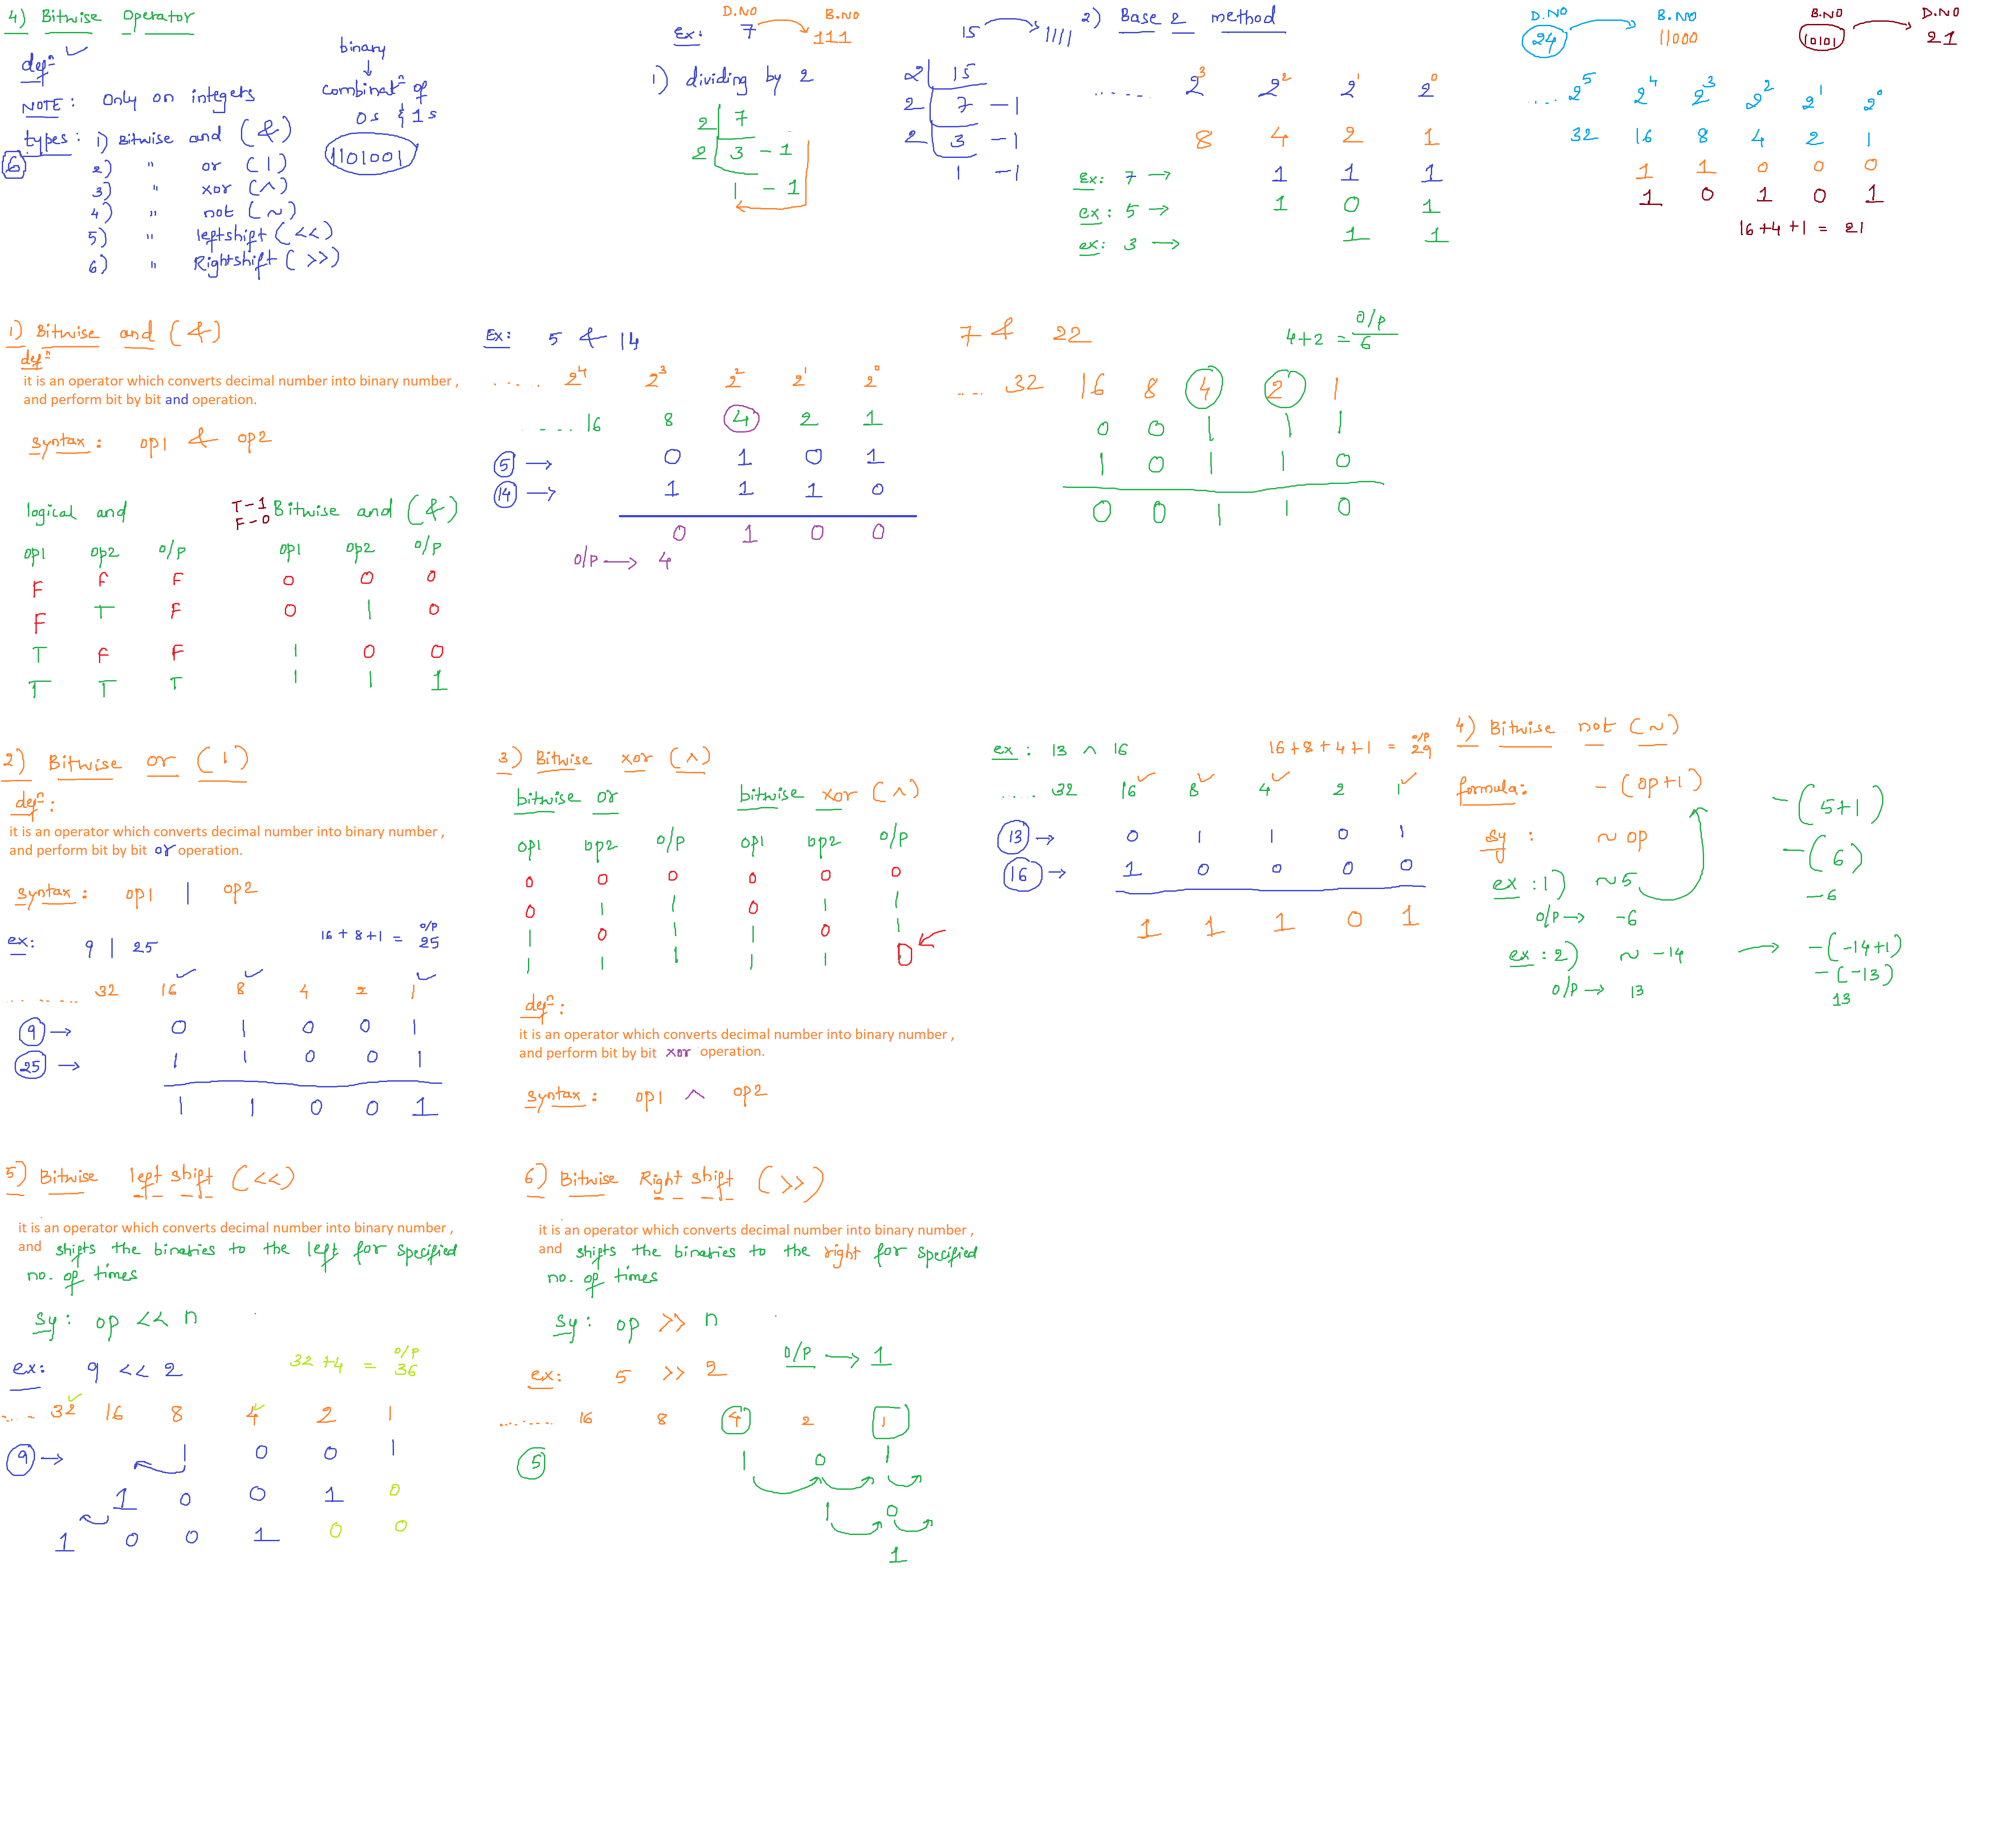 4) Bitwise Operator
defⁿ
NOTE: Only on integers
types: 1) Bitwise and (&)
6
2) " or (|)
3) " xor (^)
4) " not (~)
5) " leftshift (<<)
6) " Rightshift (>>)
binary
↓
combinatⁿ of
0s & 1s
1101001
D.NO B.NO
Ex: 7 → 111
1) dividing by 2
2 | 7
2 | 3 - 1
1 - 1
15 → 1111
2 | 15
2 | 7 - 1
2 | 3 - 1
1 - 1
2) Base 2 method
...... 2³ 2² 2¹ 2⁰
8 4 2 1
Ex: 7 → 1 1 1
ex: 5 → 1 0 1
ex: 3 → 1 1
D.NO B.NO
24 → 11000
B.NO D.NO
10101 → 21
.... 2⁵ 2⁴ 2³ 2² 2¹ 2⁰
32 16 8 4 2 1
1 1 0 0 0
1 0 1 0 1
16+4+1 = 21
1) Bitwise and (&)
defⁿ
it is an operator which converts decimal number into binary number ,
and perform bit by bit and operation.
syntax: op1 & op2
logical and
op1 op2 o/p
F F F
F T F
T F F
T T T
T-1
F-0
Bitwise and (&)
op1 op2 o/p
0 0 0
0 1 0
1 0 0
1 1 1
Ex: 5 & 14
..... 2⁴ 2³ 2² 2¹ 2⁰
.... 16 8 4 2 1
5 → 0 1 0 1
14 → 1 1 1 0
0 1 0 0
o/p → 4
7 & 22
4+2 = 6
o/p
.... 32 16 8 4 2 1
0 0 1 1 1
1 0 1 1 0
0 0 1 1 0
2) Bitwise or (|)
defⁿ:
it is an operator which converts decimal number into binary number ,
and perform bit by bit or operation.
syntax: op1 | op2
ex: 9 | 25
o/p
16 + 8 + 1 = 25
........ 32 16 8 4 2 1
9 → 0 1 0 0 1
25 → 1 1 0 0 1
1 1 0 0 1
3) Bitwise xor (^)
bitwise or
op1 op2 o/p
0 0 0
0 1 1
1 0 1
1 1 1
bitwise xor (^)
op1 op2 o/p
0 0 0
0 1 1
1 0 1
1 1 0
defⁿ:
it is an operator which converts decimal number into binary number ,
and perform bit by bit xor operation.
syntax: op1 ^ op2
ex: 13 ^ 16
o/p
16+8+4+1 = 29
.... 32 16 8 4 2 1
13 → 0 1 1 0 1
16 → 1 0 0 0 0
1 1 1 0 1
4) Bitwise not (~)
formula: -(op+1)
sy: ~ op
ex: 1) ~5
o/p → -6
-(5+1)
-(6)
-6
ex: 2) ~ -14 → -(-14+1)
-(-13)
13
o/p → 13
5) Bitwise left shift (<<)
it is an operator which converts decimal number into binary number ,
and shifts the binaries to the left for specified
no. of times
sy: op << n
ex: 9 << 2
o/p
32 + 4 = 36
..... 32 16 8 4 2 1
9 → 1 0 0 1
1 0 0 1 0
1 0 0 1 0 0
6) Bitwise Right shift (>>)
it is an operator which converts decimal number into binary number ,
and shifts the binaries to the right for specified
no. of times
sy: op >> n
o/p → 1
ex: 5 >> 2
......... 16 8 4 2 1
5 1 0 1
1 0
1